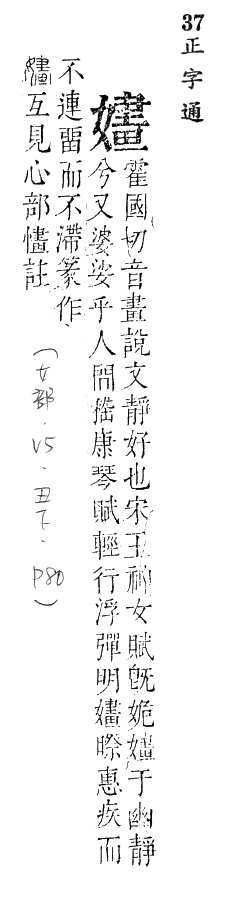 37正字通
嫿
霍國切音畫說文靜好也宋玉神女賦旣姽嫿于幽靜
兮又婆娑乎人間嵇康琴賦輕行浮彈明嫿暩惠疾而
不連畱而不滯篆作
互見心部㦎註
(女部.V5.丑下.P80)